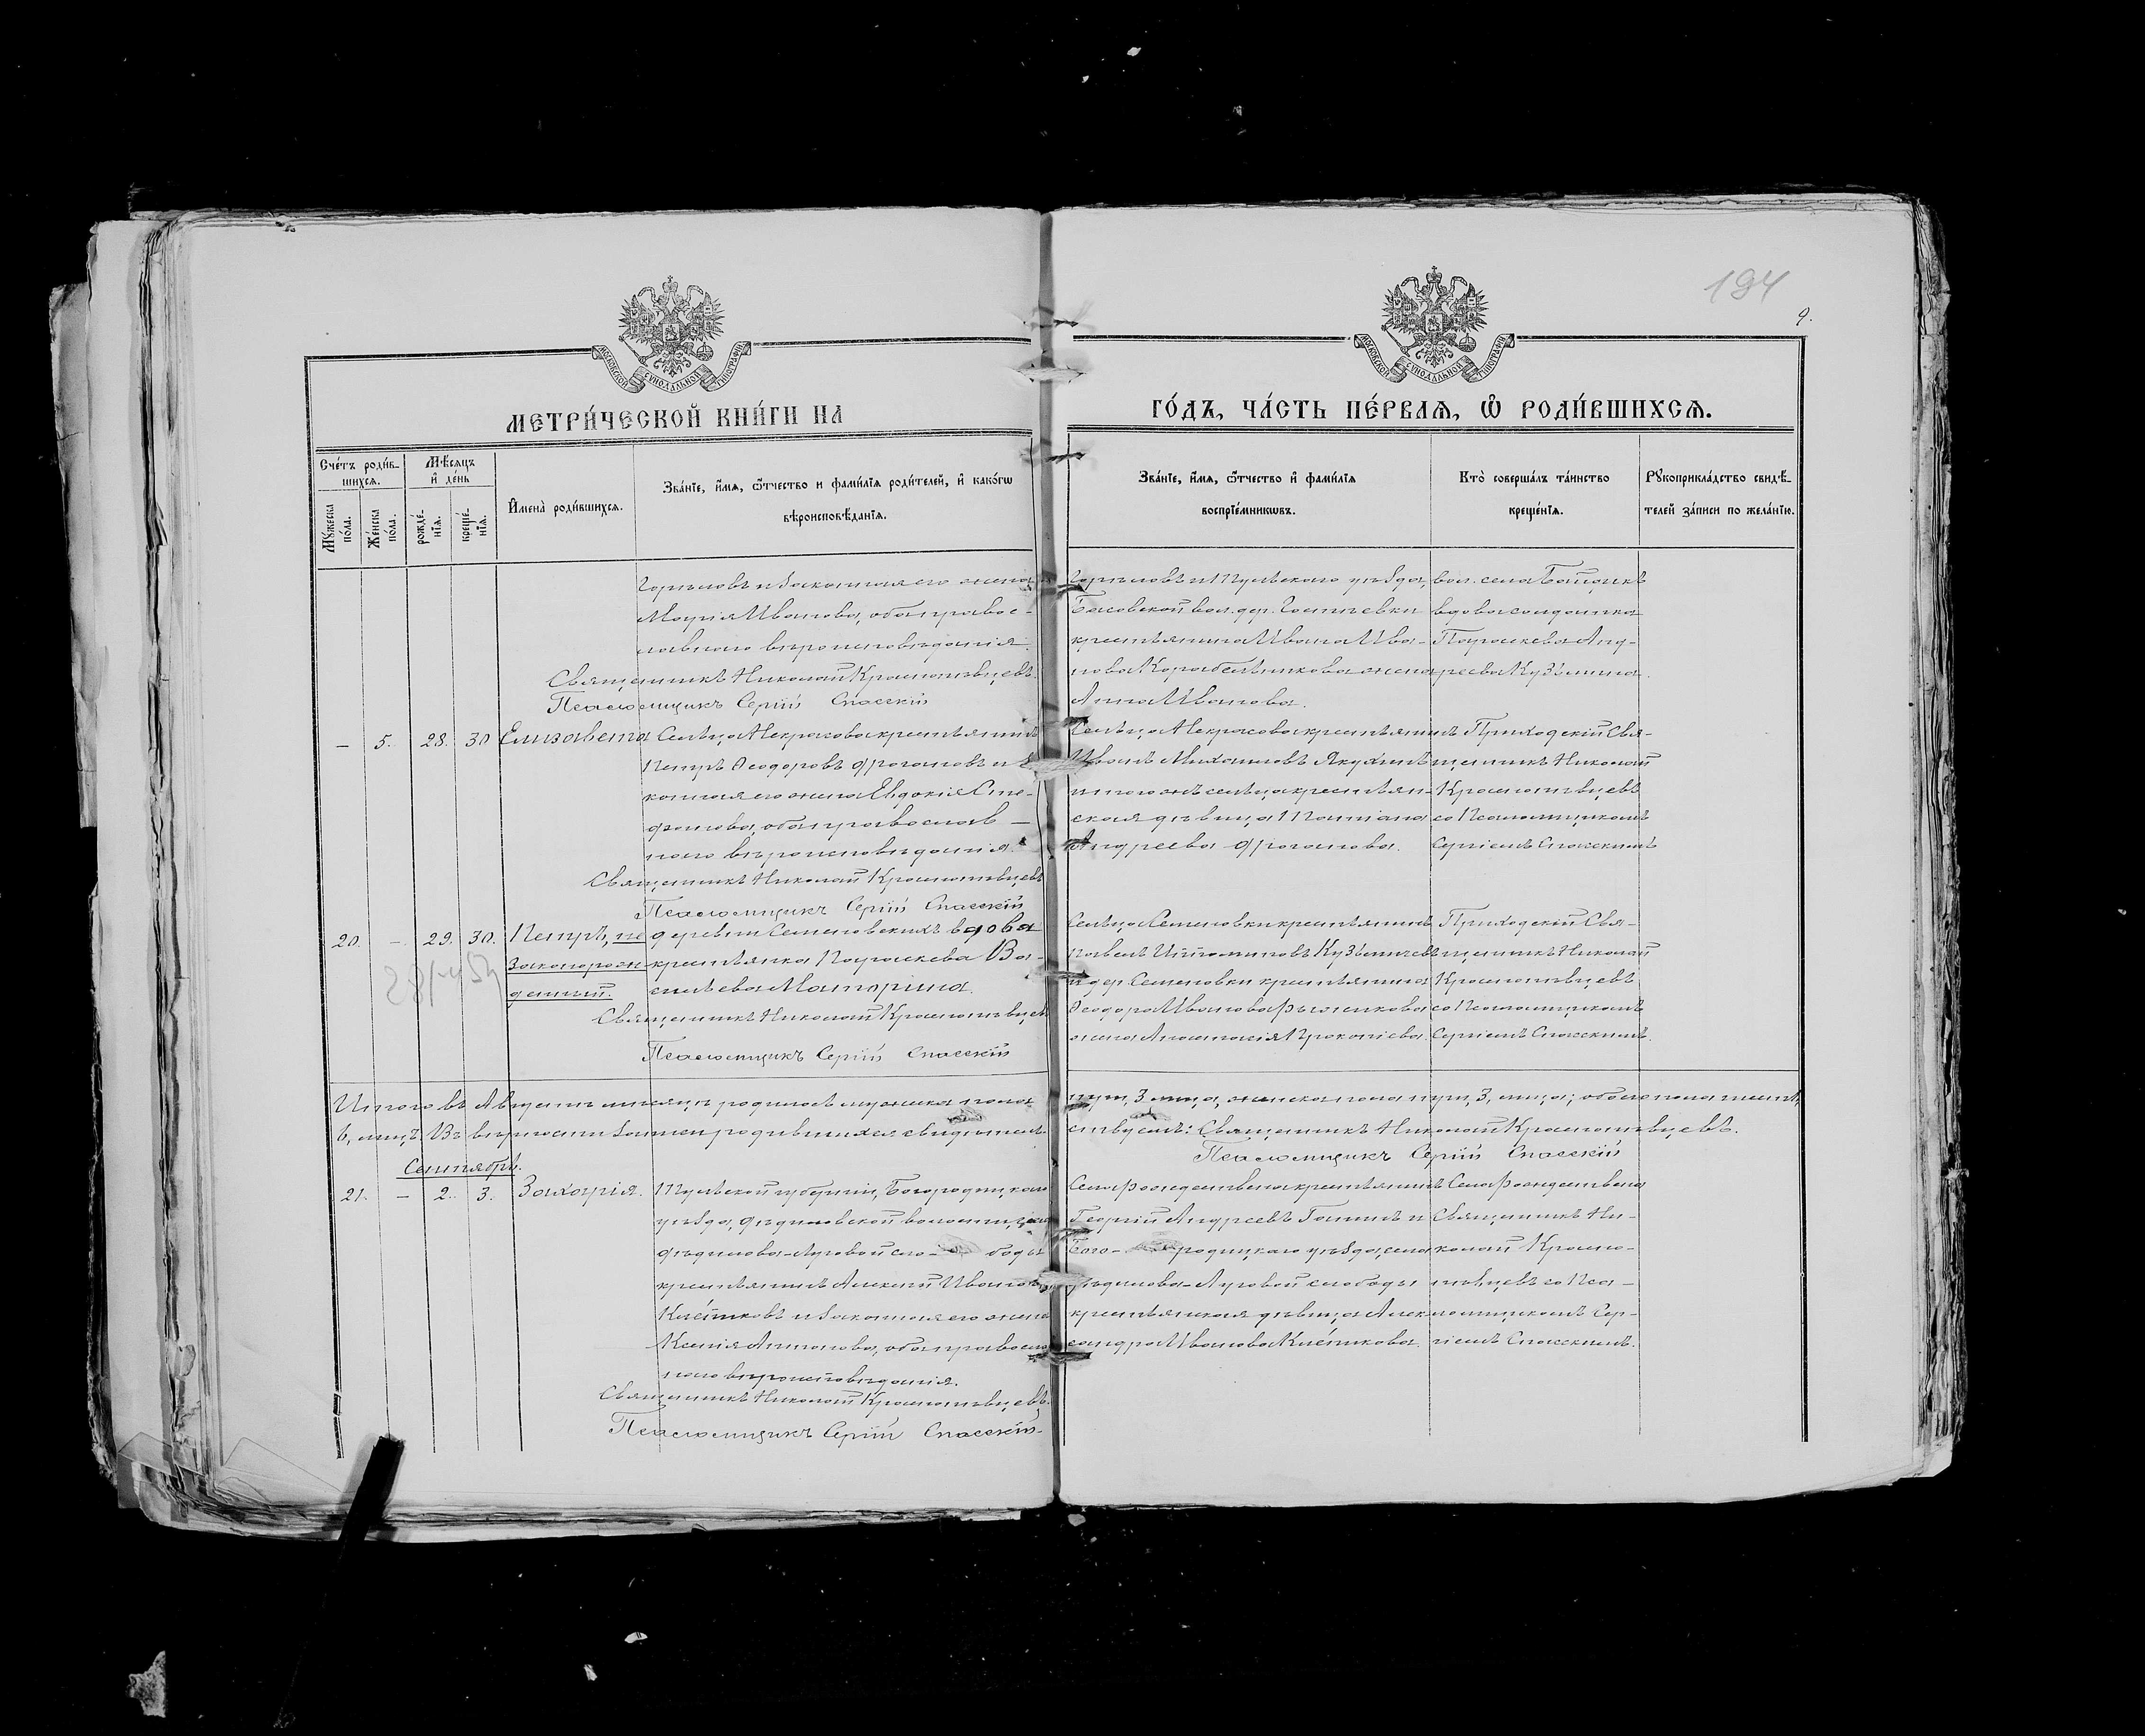 194
9.
МОСКОВСКОЙ СѴНОДАЛЬНОЙ ТИПОГРАФІИ
МОСКОВСКОЙ СѴНОДАЛЬНОЙ ТИПОГРАФІИ
МЕТРИ́ЧЕСКОЙ КНИ́ГИ НА
ГО́ДЪ, ЧА́СТЬ ПЕ́РВАЯ, Ѡ РОДИ́ВШИХСЯ.
Сче́тъ роди́в-
шихся.
Мꙋ́жеска по́ла.
Же́нска по́ла.
Мѣ́сяцъ и де́нь
рожде́-
нія.
креще́-
нія.
Имена̀ роди́вшихся.
Зва́ніе, и́мя, ѻ́тчество и фами́лія роди́телей, и како́гѡ
вѣроисповѣ́данія.
Зва́ніе, и́мя, ѻ́тчество и фами́лія
воспріе́мникѡвъ.
Кто̀ соверша́лъ та́инство
креще́нія.
Рꙋкоприкла́дство свидѣ́-
телей за́писи по жела́нію.
и законная его жена
Марія Иванова, оба правос-
лавнаго вѣроисповѣданія.
Священникъ Николай Краснопѣвцевъ.
Псаломщикъ Сергій Спасскій
и Тульскаго уѣзда,
вол. дер.
крестьянина Ивана Ива-
нова Корабельникова жена
Анна Иванова.
вол. села
вдова солдатка
Параскева Анд-
реева Кузьмина.
– 5. 28. 30 Елизавета
Сельца Некрасова крестьянинъ
Петръ Ѳеодоровъ и за-
конная его жена Евдокія Сте-
фанова, оба православ-
наго вѣроисповѣданія.
Священникъ Николай Краснопѣвцевъ
Псаломщикъ Сергій Спасскій
Сельца Некрасова крестьянинъ
Иванъ Михаиловъ
и того же сельца крестьян-
ская дѣвица Татіана
Андреева
Приходскій Свя-
щенникъ Николай
Краснопѣвцевъ
со Псаломщикомъ
Сергіемъ Спасскимъ
20. – 29. 30. Петръ, не
законорож-
денный.
деревни Семеновскихъ вдова
крестьянка Параскева Ва-
сильева Матюрина.
Священникъ Николай Краснопѣвцевъ
Псаломщикъ Сергій Спасскій
Сельца Семеновки крестьянинъ
Павелъ Кузьмичевъ
и дер. Семеновки крестьянина
Ѳеодора Иванова Рыженкова
жена Анастасія Прокопіева.
Приходскій Свя-
щенникъ Николай
Краснопѣвцевъ
со Псаломщикомъ
Сергіемъ Спасскимъ.
Итого въ Августѣ мѣсяцѣ родилось мужеска пола три, 3, лица, женска пола три, 3, лица; обоего пола шесть,
6, лицъ. Въ вѣрности записи родившихся свидѣтельствуемъ: Священникъ Николай Краснопѣвцевъ.
Псаломщикъ Сергій Спасскій
Сентябрь.
21. – 2. 3. Захарія.
Тульской губерніи, Богородицкаго
уѣзда, Дѣдиловской волости, села
Дѣдилова-Луговой сло-боды
крестьянинъ Алексѣй Ивановъ
Клейтковъ и законная его жена
Ксенія Антонова, оба православ-
наго вѣроисповѣданія.
Священникъ Николай Краснопѣвцевъ.
Псаломщикъ Сергій Спасскій
Села Рождествена крестьянинъ
Георгій Андреевъ и
Бого-родицкаго уѣзда, села
Дѣдилова-Луговой слободы
крестьянская дѣвица Алек-
сандра Иванова Клейткова.
Села Рождествена
Священникъ Ни-
колай Красно-
пѣвцевъ со Пса-
ломщикомъ Сер-
гіемъ Спасскимъ.